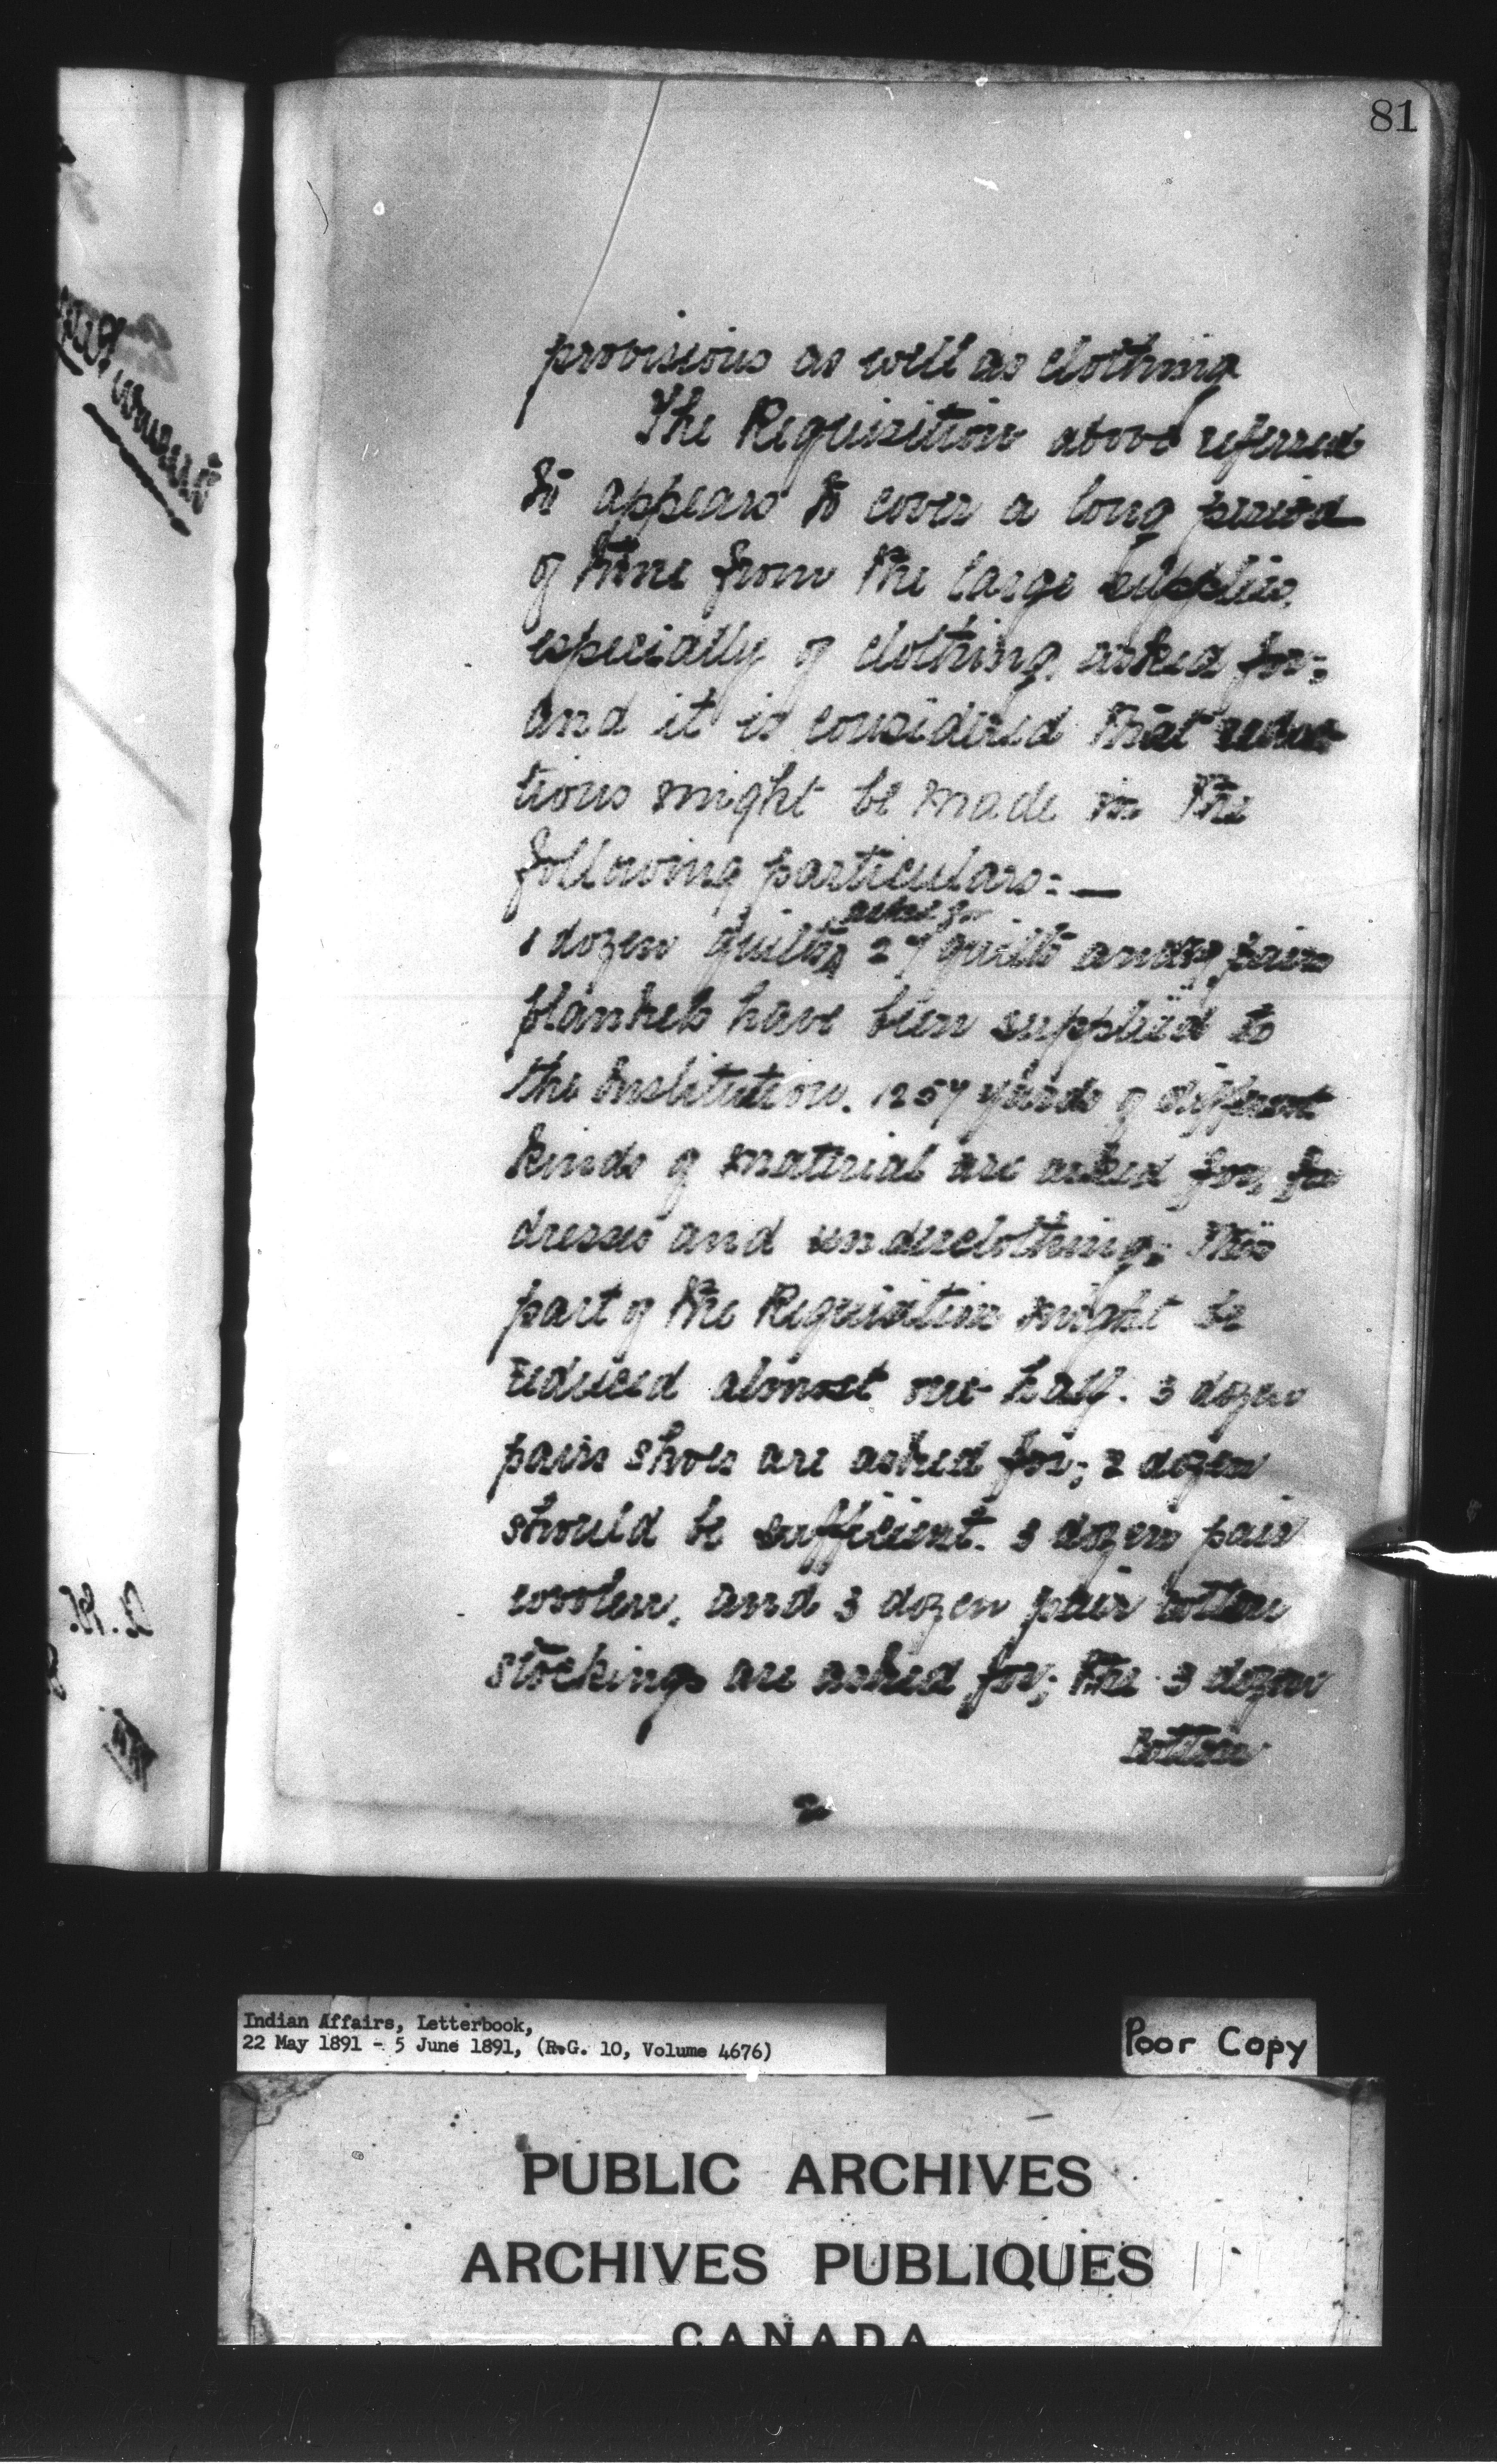 81
provisions as well as clothing
The Requisition above referred
to appears to cover a long period
of time from the large supplies,
especially of clothing, asked for;
and it is considered that reduc-
tions might be made in the
following particulars: —
asked for
dozen quilts 27 quilts and pairs
blankets have been supplied to
the Institution. 1257 yards of different
kinds of material are asked for, for
dresses and underclothing; this
part of the Requisition might be
reduced almost one half. 3 dozen
pairs shoes are asked for; 2 dozen
should be sufficient. 3 dozen pair
woolen, and 3 dozen pair cotton
stockings are asked for; the 3 dozen
Cotton
Indian Affairs, Letterbook,
22 May 1891 - 5 June 1891, (R.G. 10, Volume 4676)
Poor Copy
PUBLIC ARCHIVES
ARCHIVES PUBLIQUES
CANADA